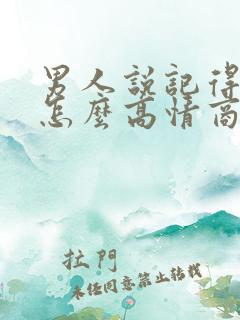 男人說記得
怎麼高情商
拉門
未經同意禁止轉載